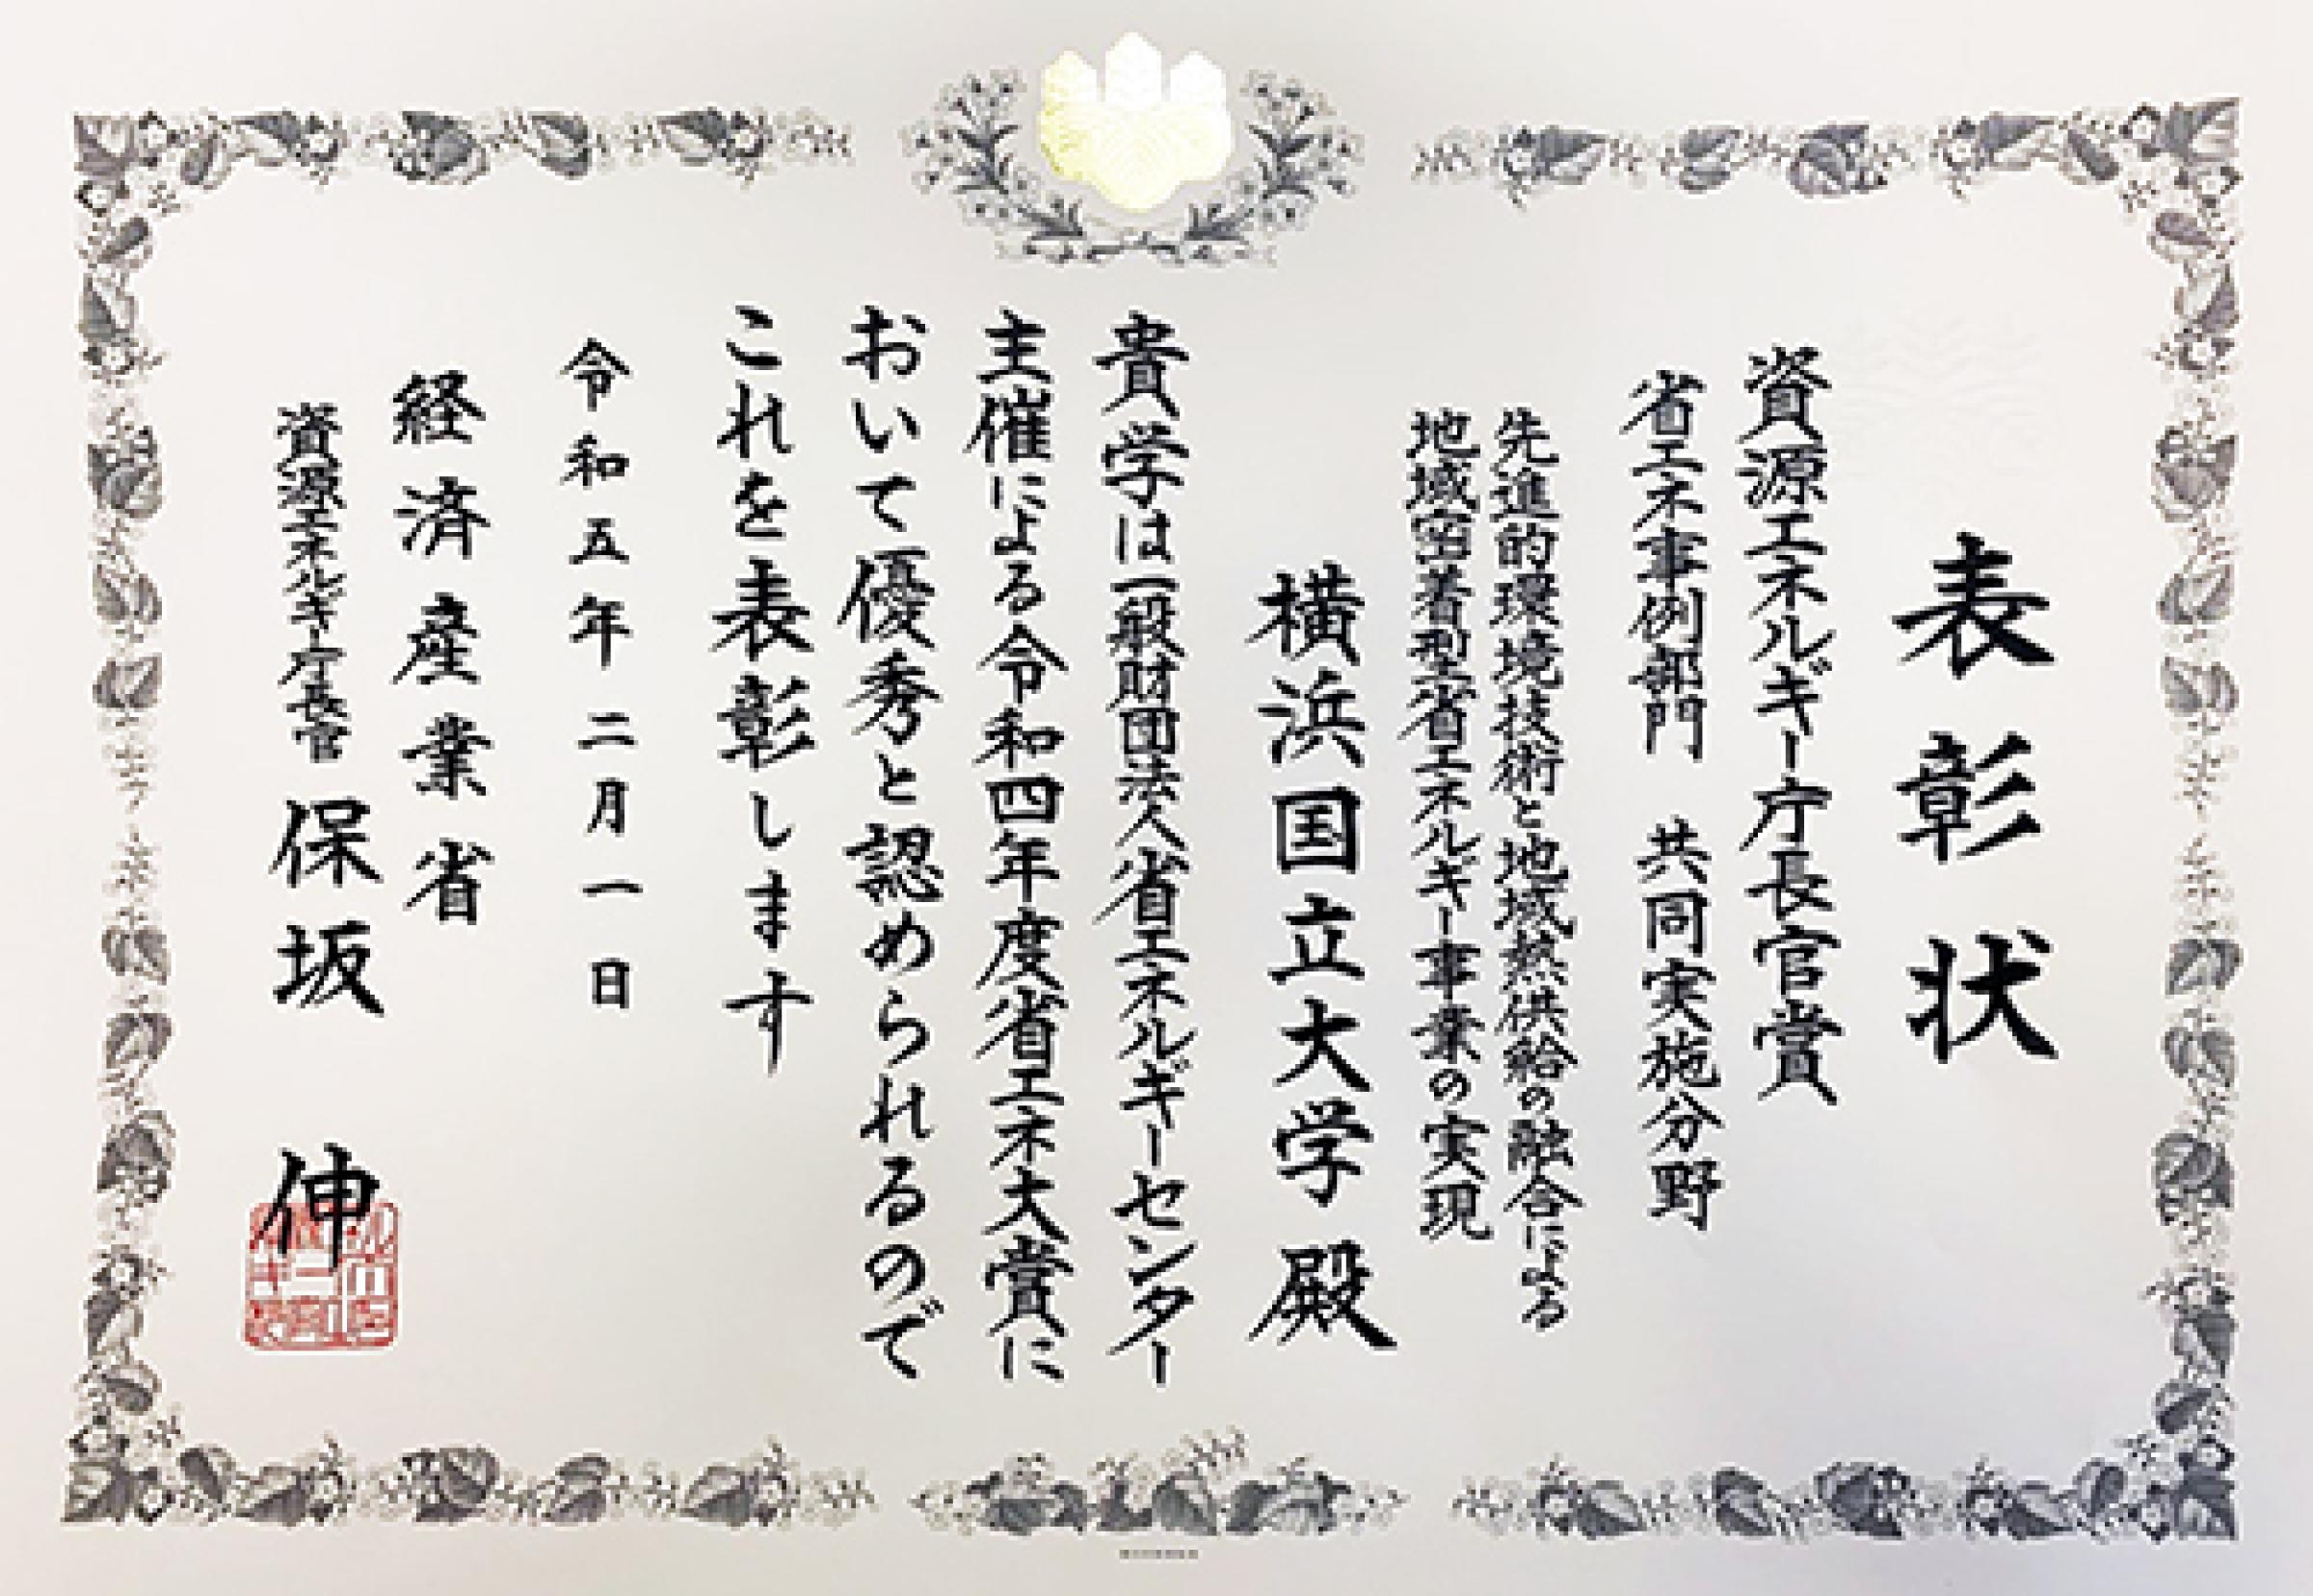 表彰状
資源エネルギー庁長官賞
省エネ事例部門　共同実施分野
先進的環境技術と地域熱供給の融合による
地域密着型省エネルギー事業の実現
横浜国立大学殿
貴学は一般財団法人省エネルギーセンター
主催による令和四年度省エネ大賞に
おいて優秀と認められるので
これを表彰します
令和五年二月一日
経済産業省
資源エネルギー庁長官　保坂　伸